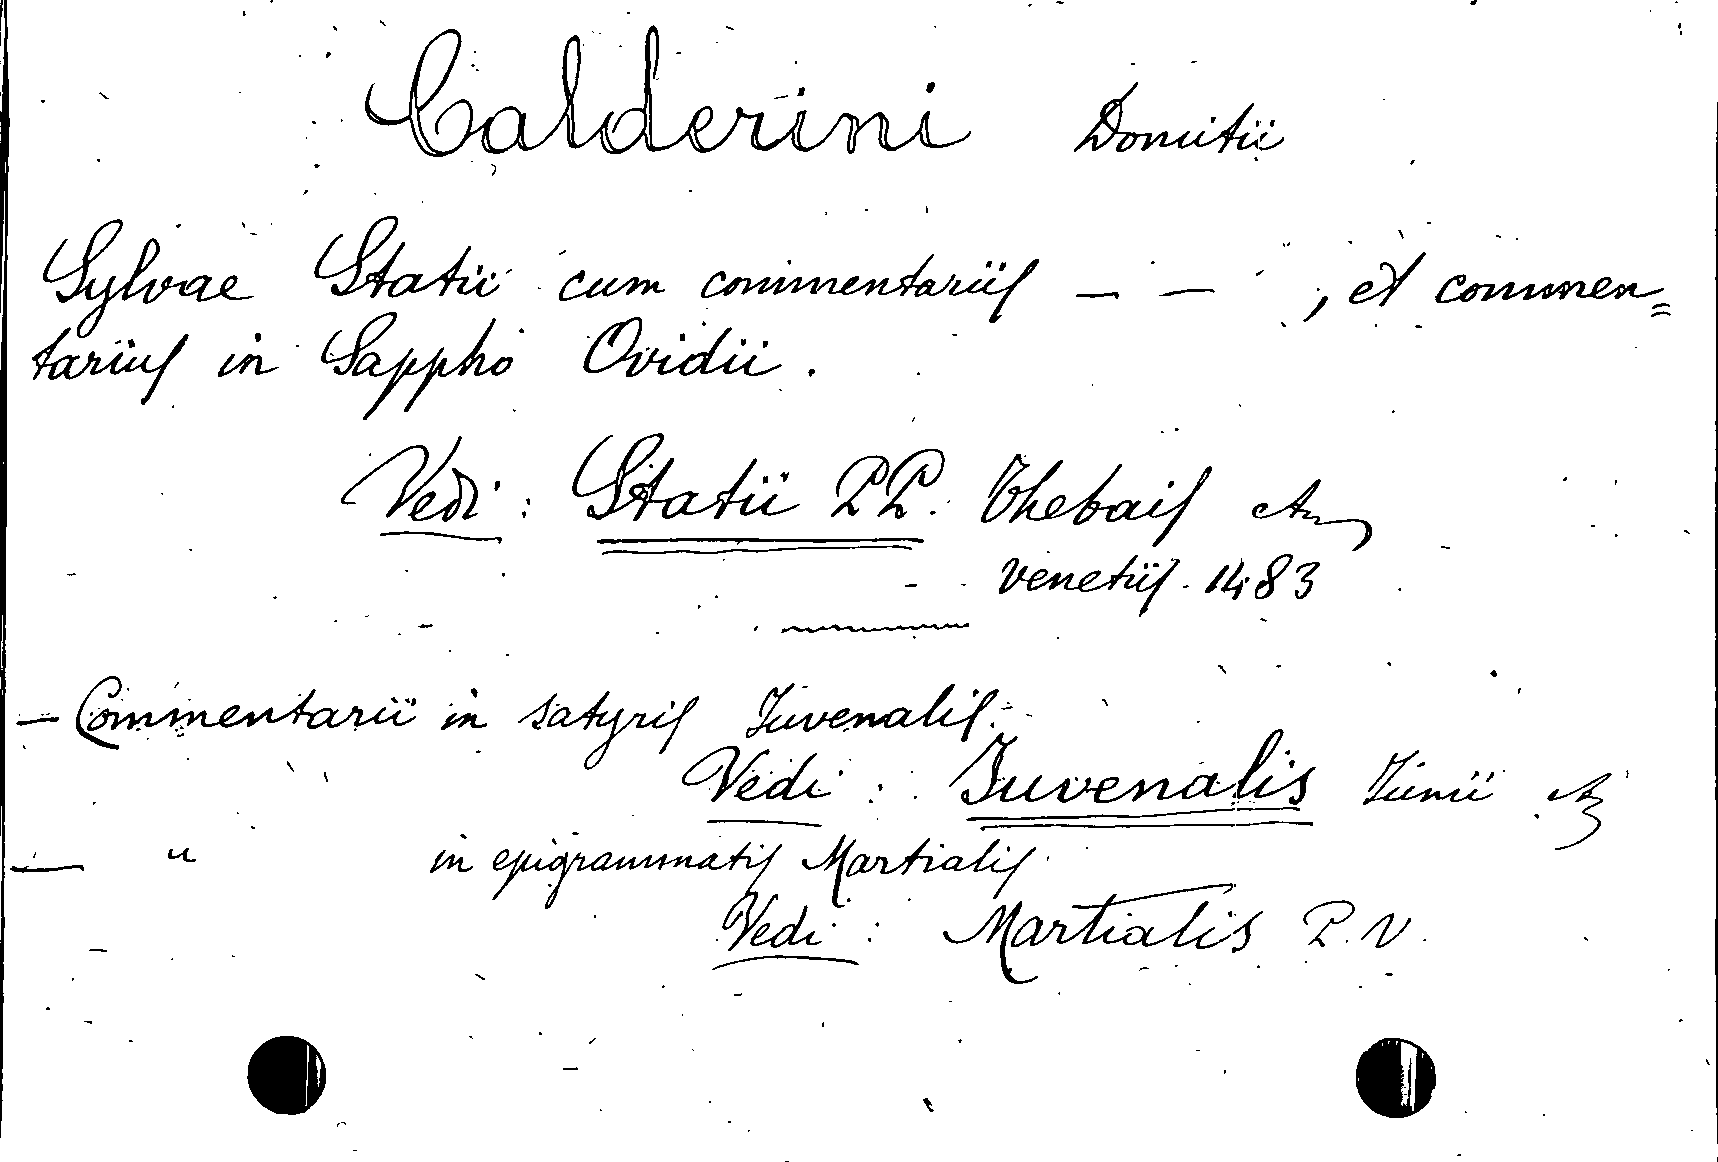 Calderini Domitii
Sylvae Statii cum commentariis — — , et commen=
tariis in Sappho Ovidii.
Vedi: Statii P.P. Thebais etc
Venetiis. 1483
— Commentarii in satyris Iuvenalis.
Vedi: Iuvenalis Iunii etc
— " in epigrammatis Martialis
Vedi: Martialis P. V.